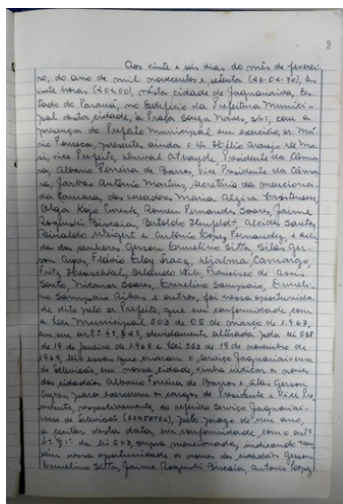 2
Aos vinte e seis dias do mês de feverei-
ro, do ano de mil novecentos e setenta (26-02-70), às
vinte horas (20:00), nésta cidade de Jaguariaiva, Es-
tado do Paraná, no Edifício da Prefeitura Munici-
pal désta cidade, à Praça Getúlio, s/nº, com a
presença do Prefeito Municipal em exercício sr. Má-
rio Fonseca, presente ainda o sr. Hélio Araujo
vice Prefeito, Presidente da Câma-
ra, Albano Ferreira de Barros, Vice Presidente da Câma-
ra, Jarbas Antônio Martins, Secretário da menciona-
da Câmara, dos vereadores, Maria
Olga Romeu Fernandes Soares, Jaime
Bertoldo Alcides Santos,
Reinaldo e Antonio Lopes Fernandez e
dos dos senhores, Gerson Ermelino Sitta, Silas Ger-
son Ayres, Djalma Camargo,
Fritz Orlando Francisco de Assis
Santo, Nicanor Soares, Ermelino Sampaio,
Sampaio Ribas e outros, foi nessa oportunidade
dito pelo sr Prefeito, que em conformidade com
a Lei Municipal 503 de 05 de março de 1.967,
em seu artº 4º, §3º, devidamente alterada pela Lei 528
de 19 de Janeiro de 1.969 e Lei 553 de 19 de novembro de
1969, leis essas que criaram o Serviço Jaguariaiven-
se de Televisão, em nossa cidade, vinha indicar os nomes
dos cidadãos Albano Ferreira de Barros e Silas Gerson
Ayres, para exercerem os cargos de Presidente e Vice Pre-
sidente, respectivamente, do referido Serviço Jaguariai-
vense de Televisão pelo prazo de um ano,
a contar désta data, em conformidade com o artº
4º §1º da Lei 503, supra mencionada, indicando tam-
bém nessa oportunidade os nomes dos cidadãos Gerson
Ermelino Sitta, Jaime Antonio Lopez